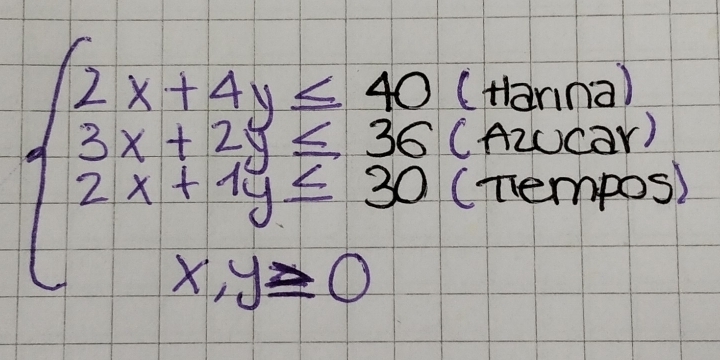 2x + 4y ≤ 40 (Harina)
3x + 2y ≤ 36 (Azucar)
2x + 1y ≤ 30 (Tiempos)
x, y ≥ 0